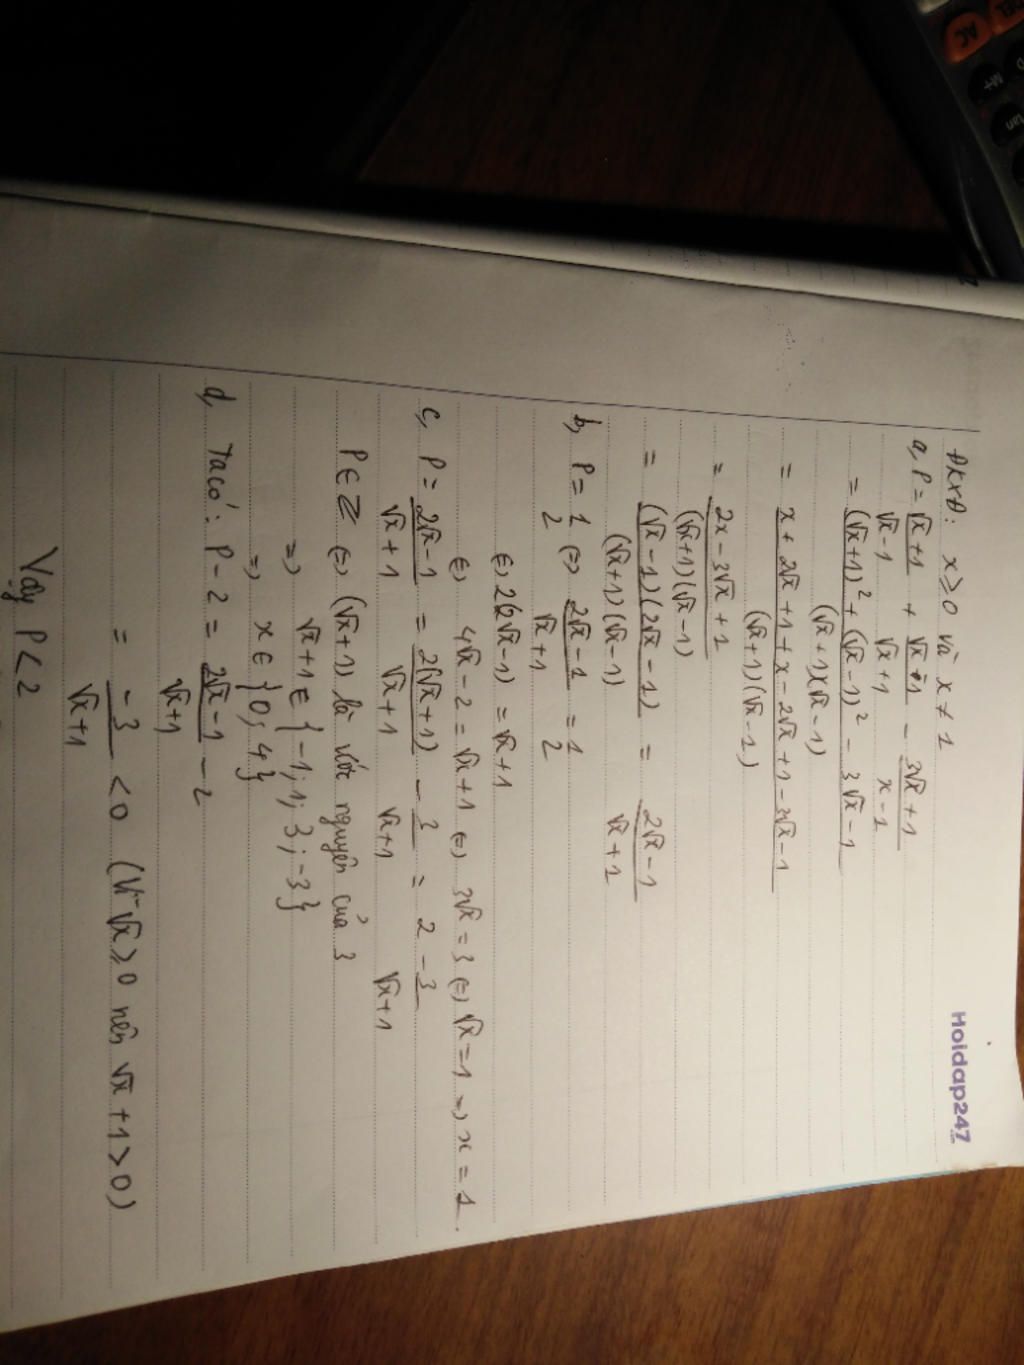 Hoidap247
ĐKXĐ: x ≥ 0 và x ≠ 1
a, P = (√x+1)/(√x-1) + (√x-1)/(√x+1) - (3√x+1)/(x-1)
= ((√x+1)² + (√x-1)² - 3√x-1)/((√x+1)(√x-1))
= (x+2√x+1+x-2√x+1-3√x-1)/((√x+1)(√x-1))
= (2x-3√x+1)/((√x+1)(√x-1))
= ((√x-1)(2√x-1))/((√x+1)(√x-1)) = (2√x-1)/(√x+1)
b, P = 1/2 (=) (2√x-1)/(√x+1) = 1/2
(=) 2(2√x-1) = √x+1
(=) 4√x-2 = √x+1 (=) 3√x = 3 (=) √x = 1 => x = 1.
c, P = (2√x-1)/(√x+1) = 2(√x+1)/(√x+1) - 3/(√x+1) = 2 - 3/(√x+1)
P ∈ Z (=) (√x+1) là ước nguyên của 3
=> √x+1 ∈ {-1; 1; 3; -3}
=> x ∈ {0; 4}
d, Ta có: P-2 = (2√x-1)/(√x+1) - 2
= -3/(√x+1) < 0 (Vì √x ≥ 0 nên √x+1 > 0)
Vậy P < 2
DEL
AC
M+
tan